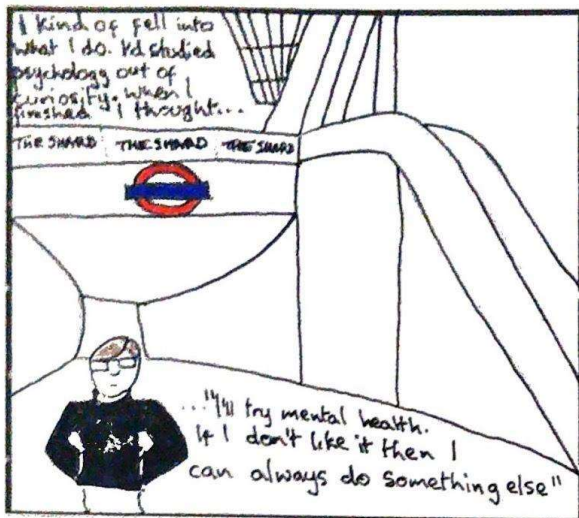 I kind of fell into
what I do. I'd studied
psychology out of
curiosity. When I
finished I thought...
THE SHARD THE SHARD THE SHARD
..."I'll try mental health.
If I don't like it then I
can always do something else"